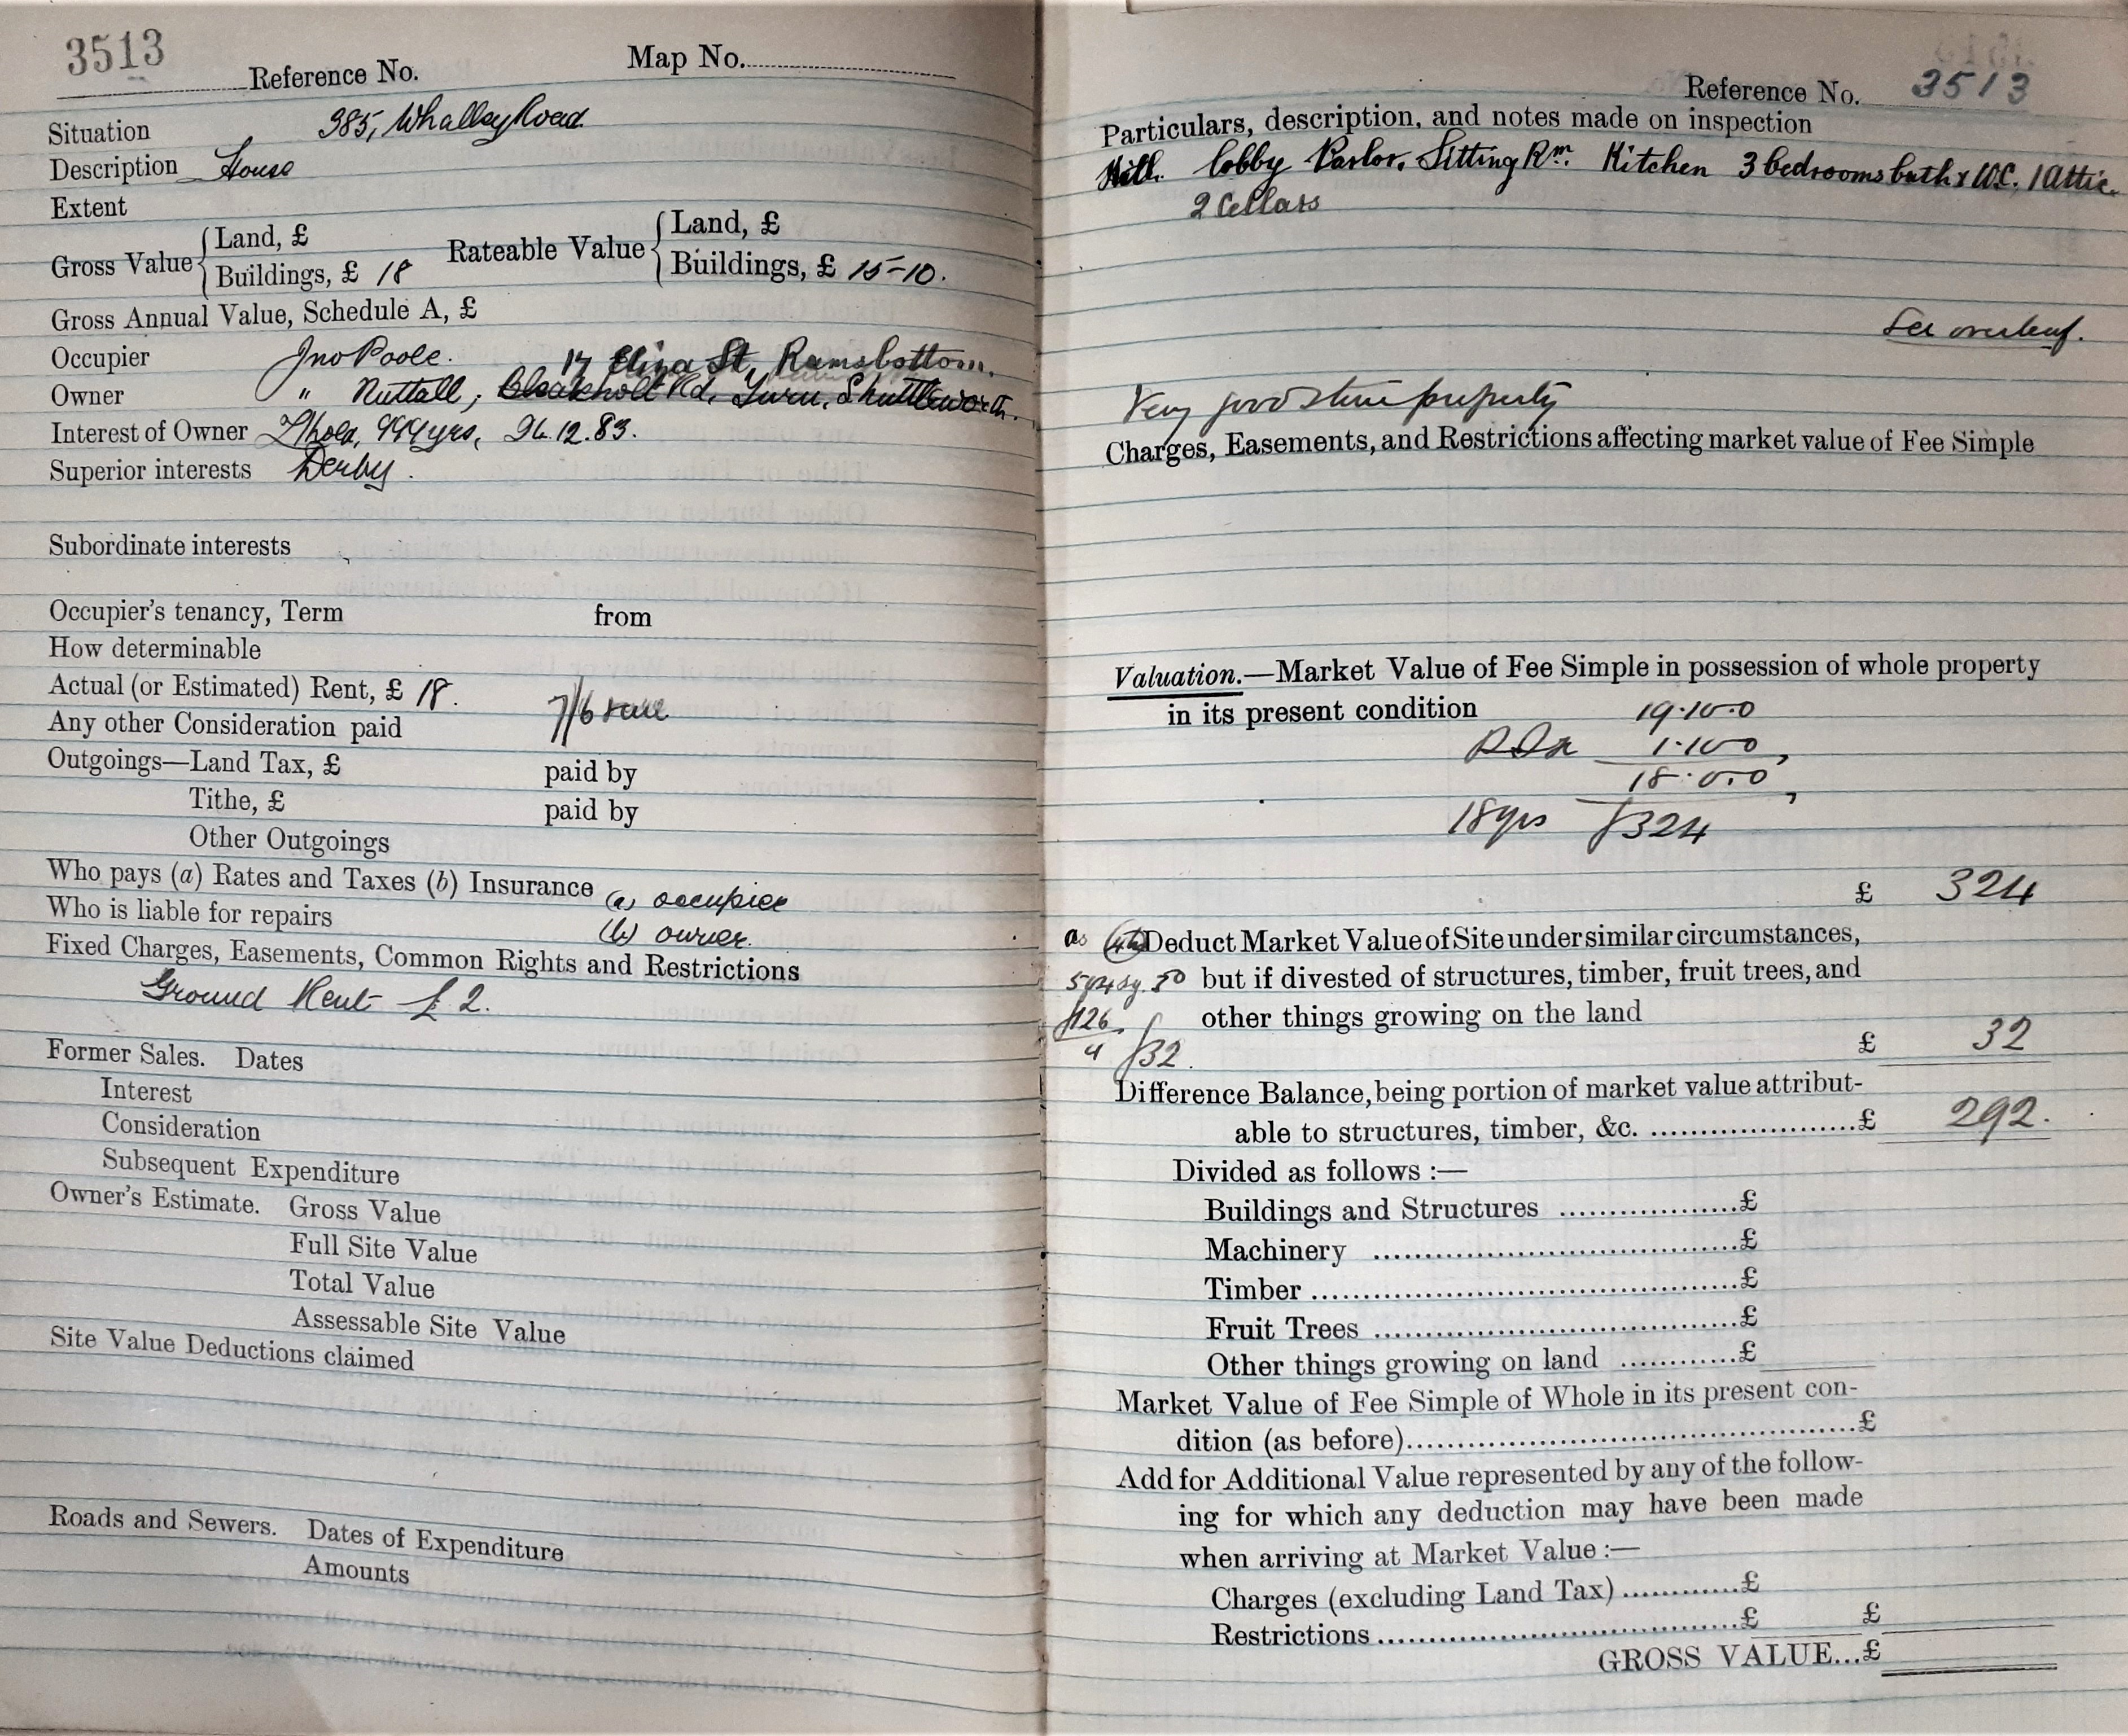 3513
Reference No. Map No.
Situation 385, Whalley Road.
Description House
Extent
Gross Value { Land, £ Rateable Value { Land, £
Buildings, £ 18 Buildings, £ 15-10.
Gross Annual Value, Schedule A, £
Occupier Jno Poole. 17 Eliza St, Ramsbottom.
Owner " Nuttall, Bleakholt Rd, Turn, Shuttleworth.
Interest of Owner L'hold, 999 yrs, 26.12.83.
Superior interests Derby.
Subordinate interests
Occupier's tenancy, Term from
How determinable
Actual (or Estimated) Rent, £ 18. 7/6
Any other Consideration paid
Outgoings—Land Tax, £ paid by
Tithe, £ paid by
Other Outgoings
Who pays (a) Rates and Taxes (b) Insurance (a) occupier
Who is liable for repairs (b) owner.
Fixed Charges, Easements, Common Rights and Restrictions
Ground Rent £2.
Former Sales. Dates
Interest
Consideration
Subsequent Expenditure
Owner's Estimate. Gross Value
Full Site Value
Total Value
Assessable Site Value
Site Value Deductions claimed
Roads and Sewers. Dates of Expenditure
Amounts
Reference No. 3513
Particulars, description, and notes made on inspection
lobby Parlor, Sitting Rm. Kitchen 3 bedrooms bath & W.C. 1 Attic.
2 Cellars
See overleaf.
Very good stone property
Charges, Easements, and Restrictions affecting market value of Fee Simple
Valuation.—Market Value of Fee Simple in possession of whole property
in its present condition 19.10.0
1.10.0
18.0.0
18 yrs £324
£ 324
as Deduct Market Value of Site under similar circumstances,
but if divested of structures, timber, fruit trees, and
£126 other things growing on the land
4 £32. £ 32
Difference Balance, being portion of market value attribut-
able to structures, timber, &c. ....................£ 292.
Divided as follows :—
Buildings and Structures .................£
Machinery ..................................£
Timber ........................................£
Fruit Trees ..................................£
Other things growing on land ............£
Market Value of Fee Simple of Whole in its present con-
dition (as before)............................................£
Add for Additional Value represented by any of the follow-
ing for which any deduction may have been made
when arriving at Market Value :—
Charges (excluding Land Tax) ...........£
Restrictions ...................................£ £
GROSS VALUE...£